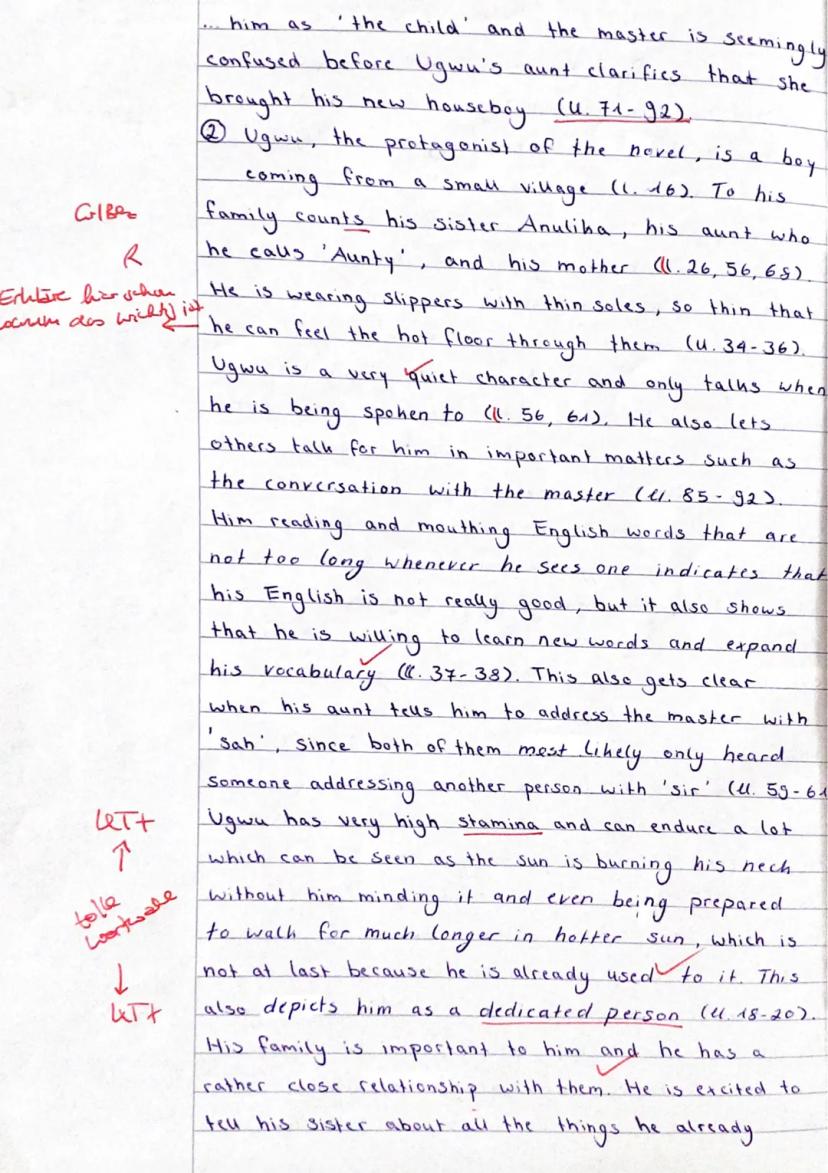 ... him as 'the child' and the master is seemingly
confused before Ugwu's aunt clarifies that she
brought his new houseboy (ll. 71-92).
② Ugwu, the protagonist of the novel, is a boy
coming from a small village (l. 16). To his
family counts his sister Anulika, his aunt who
he calls 'Aunty', and his mother (ll. 26, 56, 68).
R
Erkläre hier schon
warum das wichtig ist
He is wearing slippers with thin soles, so thin that
he can feel the hot floor through them (ll. 34-36).
Ugwu is a very quiet character and only talks when
he is being spoken to (ll. 56, 61). He also lets
others talk for him in important matters such as
the conversation with the master (ll. 85-92).
Him reading and mouthing English words that are
not too long whenever he sees one indicates that
his English is not really good, but it also shows
that he is willing to learn new words and expand
his vocabulary (ll. 37-38). This also gets clear
when his aunt tells him to address the master with
'sah', since both of them most likely only heard
someone addressing another person with 'sir' (ll. 59-61
Ugwu has very high stamina and can endure a lot
which can be seen as the sun is burning his neck
tolle
Wortwahl
without him minding it and even being prepared
to walk for much longer in hotter sun, which is
not at last because he is already used to it. This
also depicts him as a dedicated person (ll. 18-20).
His family is important to him and he has a
rather close relationship with them. He is excited to
tell his sister about all the things he already